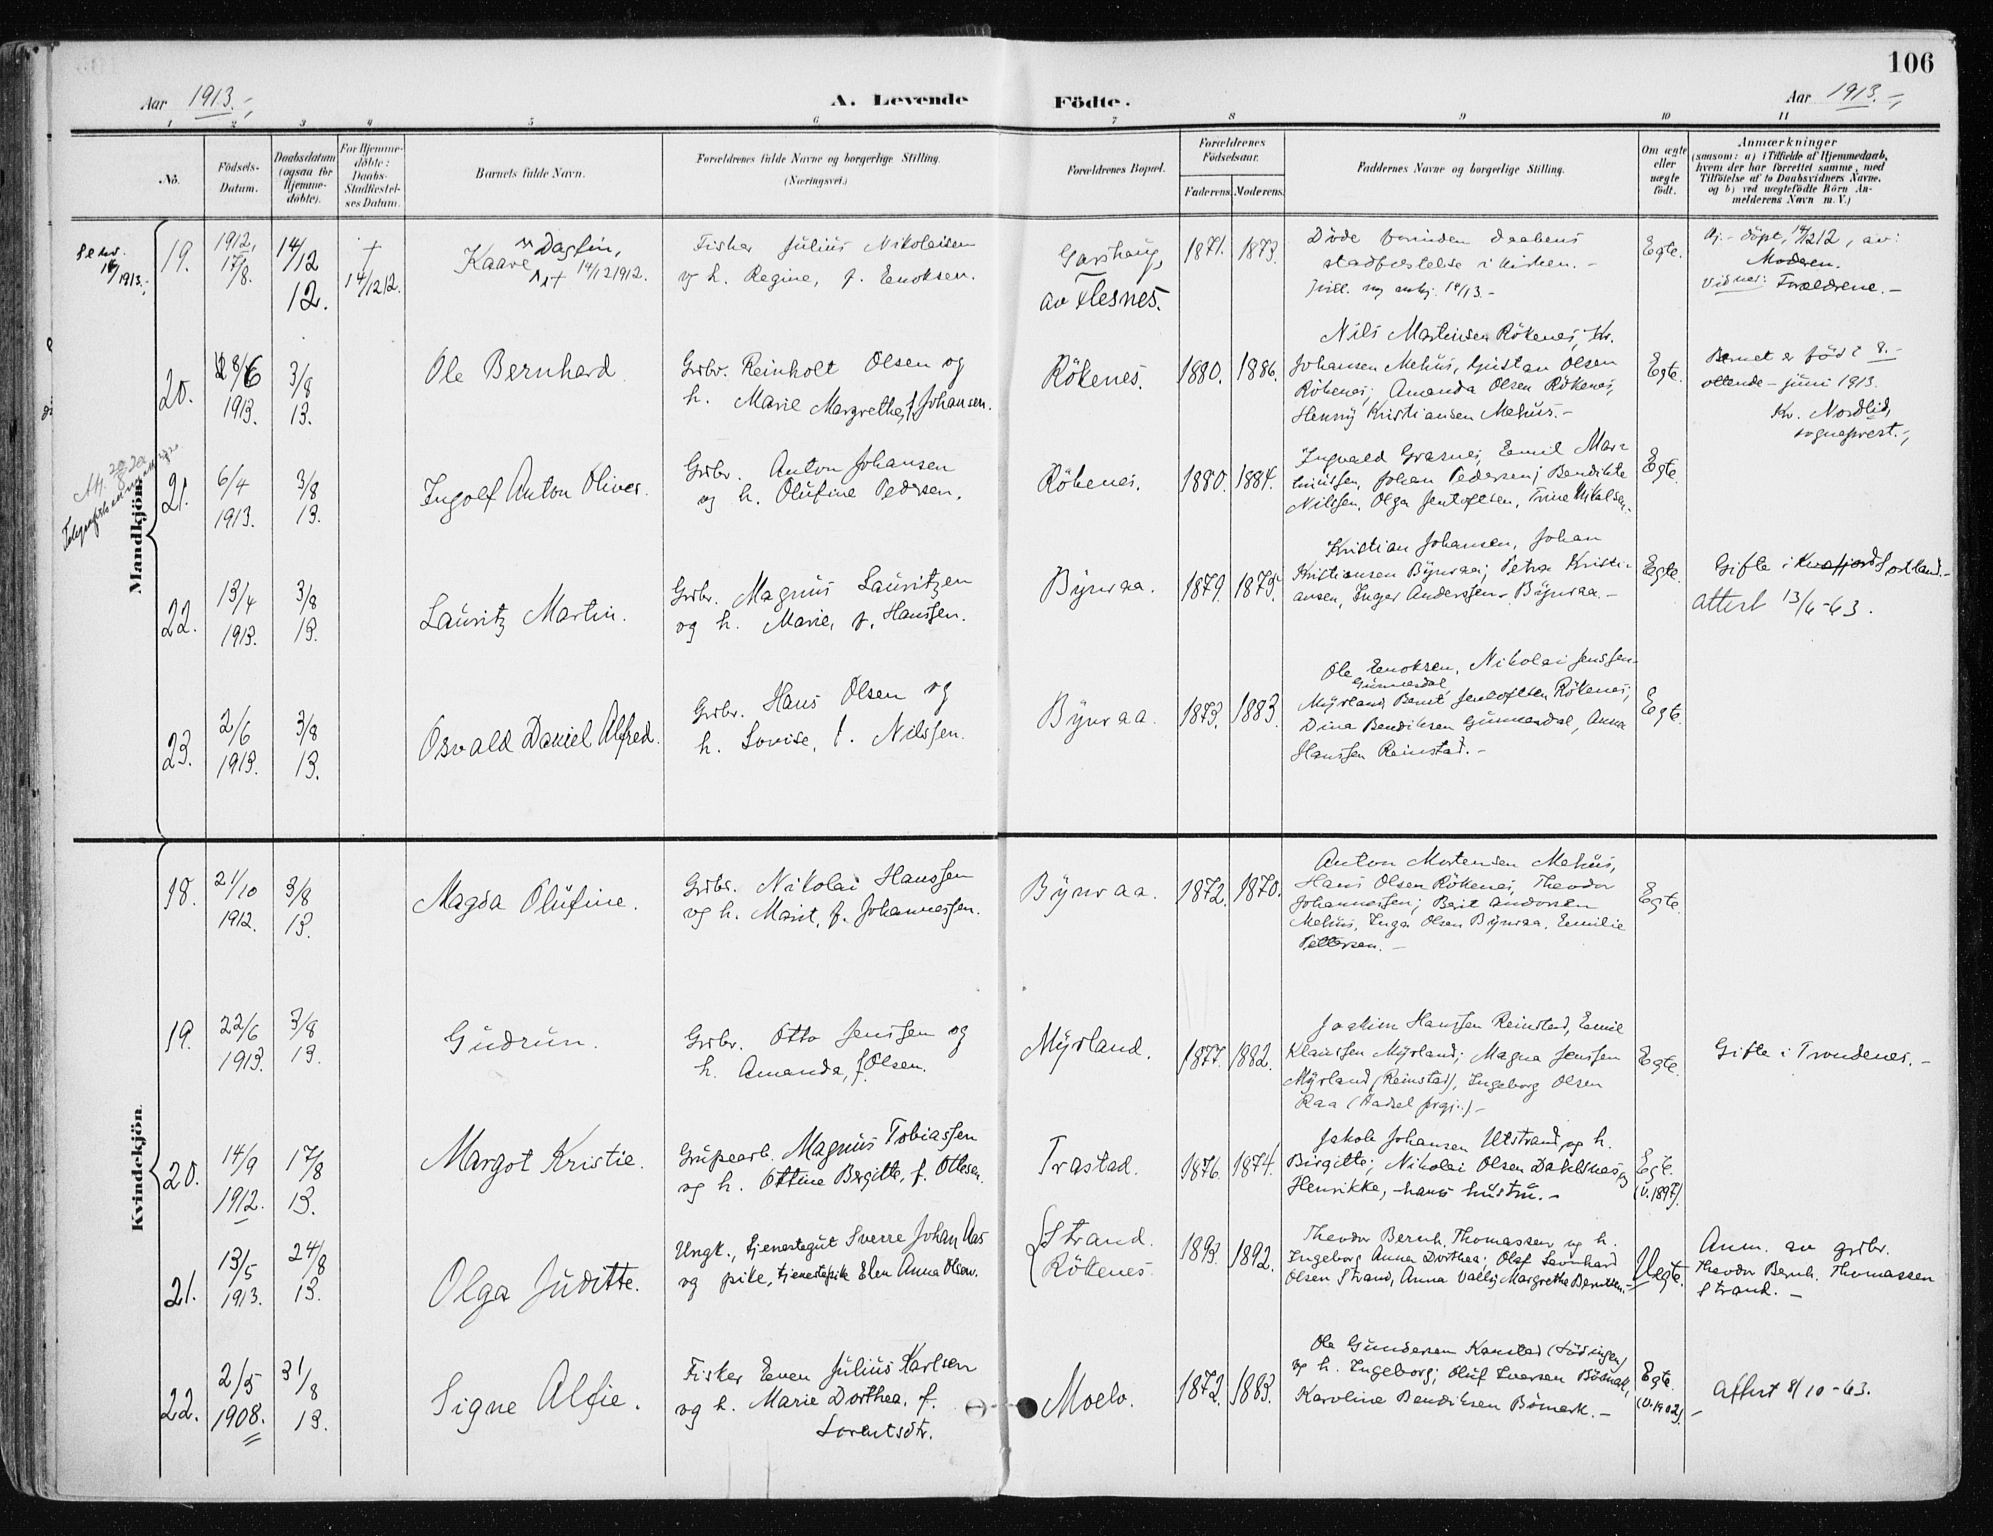 106
Aar 1913.-
A. Levende
Födte.
Aar 1913.-
1 2 3 4 5 6 7 8 9 10 11
No.
Födsels-
Datum.
Daabsdatum
(ogsaa for
Hjemme-
döbte).
For Hjemme-
döbte:
Daabs-
Stadfæstel-
ses Datum.
Barnets fulde Navn.
Forældrenes fulde Navne og borgerlige Stilling.
(Næringsvei.)
Forældrenes Bopæl.
Forældrenes
Födselsaar.
Faderens. Moderens.
Faddernes Navne og borgerlige Stilling.
Om ægte
eller
uægte
födt.
Anmærkninger
(saasom: a) i Tilfælde af Hjemmedaab,
hvem der har forrettet samme, med
Tilföielse af to Daabsvidners Navne,
og b) ved uægtefödte Börn An-
melderens Navn m. V.)
Mandkjön.
19.
1912,
17/8.
14/12
12.
+
14/12 12.
Kaare Dagfin,
+ 14/12 1912.
Fisker Julius Nikolaisen
og h. Regine, f. Enoksen.
Garshaug,
av Flesnes.
1871. 1873.
Döde forinden daabens
stadfæstelse i kirken.-
Egte.
Hj.- döpt, 14/12 12, av:
Moderen.
Vidner: Forældrene.-
20.
8/6
1913.
3/8
13.
Ole Bernhard
Grbr. Reinholt Olsen og
h. Marie Margrethe, f. Johansen.
Rökenes.
1880. 1886.
Nils Martinsen Rökenes, Kr.
Johansen Mehus, Gustav Olsen
Rökenes; Amanda Olsen Rökenes,
Henny Kristiansen Mehus.-
Egte.
Barnet er född 8.-
ottende - juni 1913.
Kr. Nordlid,
sogneprest.-,
21.
6/4
1913.
3/8
13.
Ingolf Anton Oliver.
Grbr. Anton Johansen
og h. Olufine Pedersen.
Rökenes.
1880. 1884.
Ingvald Grasnes, Emil Mar-
tinussen, Johan Pedersen; Bendikte
Nilssen, Olga Jentoftsen, Trine Mikalsen.
Egte.
22.
13/4
1913.
3/8
13.
Lauritz Martin.
Grbr. Magnus Lauritzen
og h. Marie, f. Hanssen.
Bynraa.
1879. 1875.
Kristian Johansen, Johan
Kristiansen Bynraa; Petra Kristi-
ansen, Inger Anderssen Bynraa.-
Egte.
Gifte i Kvæfjord Sortland.-
attest 13/6-63.
23.
2/6
1913.
3/8
13.
Osvald Daniel Alfred.
Grbr. Hans Olsen og
h. Lovise, f. Nilssen.
Bynraa.
1873. 1883.
Ole Enoksen, Nikolai Jenssen
Gunnesdal,
Myrland, Bernt Jentoftsen Rökenes;
Dina Bendiksen Gunnesdal, Anna
Hanssen Reinstad.-
Egte.
Kvindekjön.
18.
21/10
1912.
3/8
13.
Magda Olufine.
Grbr. Nikolai Hanssen
og h. Marit, f. Johannessen.
Bynraa.
1872. 1870.
Anton Mortensen Mehus,
Hans Olsen Rökenes, Theodor
Johannessen; Berit Andorsen
Mehus, Inga Olsen Bynraa, Emilie
Pettersen.-
Egte.
19.
22/6
1913.
3/8
13.
Gudrun.
Grbr. Otto Jenssen og
h. Amanda, f. Olsen.
Myrland.
1877. 1882.
Joakim Hanssen Reinstad, Emil
Klaussen Myrland; Magna Jenssen
Myrland (Reinstad), Ingeborg Olsen
Raa (Hadsel prgj.)-
Egte.
Gifte i Trondenes.-
20.
14/9
1912.
17/8
13.
Margot Kristie.
Grubearb. Magnus Tobiassen
og h. Ottine Birgitte, f. Ottesen.
Trastad.
1876. 1874.
Jakob Johansen Utstrand, og h.
Birgitte; Nikolai Olsen Dahlsnes og
Henrikke, hans hustru.-
Egte.
(v. 1897).
21.
13/5
1913.
24/8
13.
Olga Juditte.
Ungk., tjenestegut Sverre Johan Aas
og pike, tjenestepike Elen Anna Olsen.
Strand.
Rökenes.
1893. 1892.
Theodor Bernh. Thomassen og h.
Ingeborg Anna Dorthea; Olaf Leonhard
Olsen Strand, Anna Vally Margrethe Berntsen.-
Uegte.
Anm. av grbr.
Theodor Bernh. Thomassen
Strand.-
22.
2/5
1908.
31/8
13.
Signe Alfie.
Fisker Even Julius Karlsen
og h. Marie Dorthea, f.
Lorentsdtr.
Moelv.
1872. 1883.
Ole Gundersen Kanstad (Lödingen)
og h. Ingeborg; Oluf Iversen Bömark,
Karoline Bendiksen Bömark.-
Egte.
(v. 1902).
Attest 8/10-63.